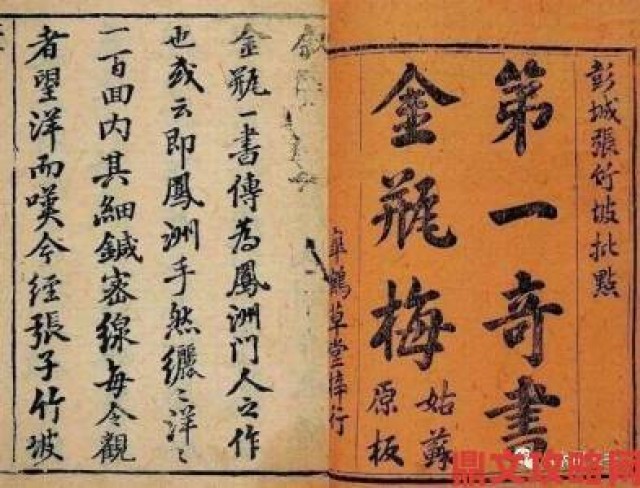 彭城張竹坡批點
第一奇書
金瓶梅
姑蘇
原板
皋鶴草堂梓行
金瓶一書傳為鳳洲門人之作
也或云即鳳洲手然纚〻洋〻
一百回內其細鍼密線每令觀
者望洋而嘆今經張子竹坡
鼎文攻略网